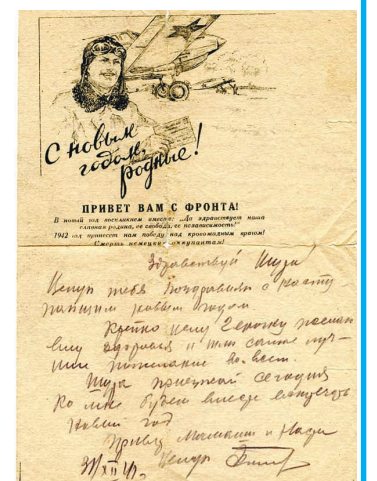 С новым
годом,
родные!
ПРИВЕТ ВАМ С ФРОНТА!
В новый год воскликнем вместе: „Да здравствует наша
главная родина, ее свобода, ее независимость!"
1942 год принесет нам победу над кровожадным врагом!
Смерть немецким оккупантам!
Здравствуй Шура!
тебя поздравить с насту
пающим новым годом
Крепко целую
ему здоровья и
пожелание
Шура приезжай сегодня
ко мне будем вместе встречать
Новый год
Привет и Наде
31/XII 41 г.